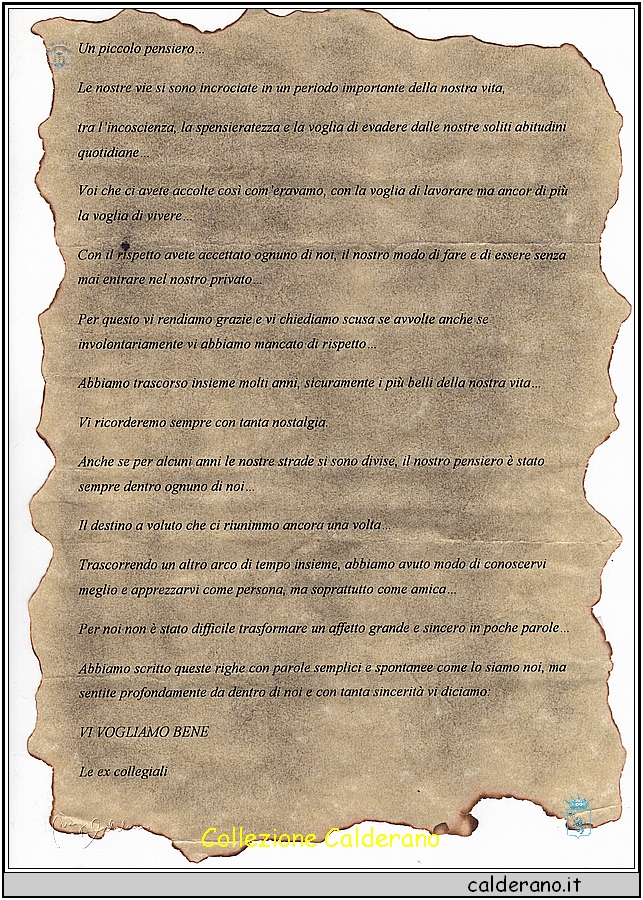 Un piccolo pensiero...
Le nostre vie si sono incrociate in un periodo importante della nostra vita,
tra l'incoscienza, la spensieratezza e la voglia di evadere dalle nostre soliti abitudini
quotidiane...
Voi che ci avete accolte così com'eravamo, con la voglia di lavorare ma ancor di più
la voglia di vivere...
Con il rispetto avete accettato ognuno di noi, il nostro modo di fare e di essere senza
mai entrare nel nostro privato...
Per questo vi rendiamo grazie e vi chiediamo scusa se avvolte anche se
involontariamente vi abbiamo mancato di rispetto...
Abbiamo trascorso insieme molti anni, sicuramente i più belli della nostra vita...
Vi ricorderemo sempre con tanta nostalgia.
Anche se per alcuni anni le nostre strade si sono divise, il nostro pensiero è stato
sempre dentro ognuno di noi...
Il destino a voluto che ci riunimmo ancora una volta...
Trascorrendo un altro arco di tempo insieme, abbiamo avuto modo di conoscervi
meglio e apprezzarvi come persona, ma soprattutto come amica...
Per noi non è stato difficile trasformare un affetto grande e sincero in poche parole...
Abbiamo scritto queste righe con parole semplici e spontanee come lo siamo noi, ma
sentite profondamente da dentro di noi e con tanta sincerità vi diciamo:
VI VOGLIAMO BENE
Le ex collegiali
Collezione Calderano
calderano.it